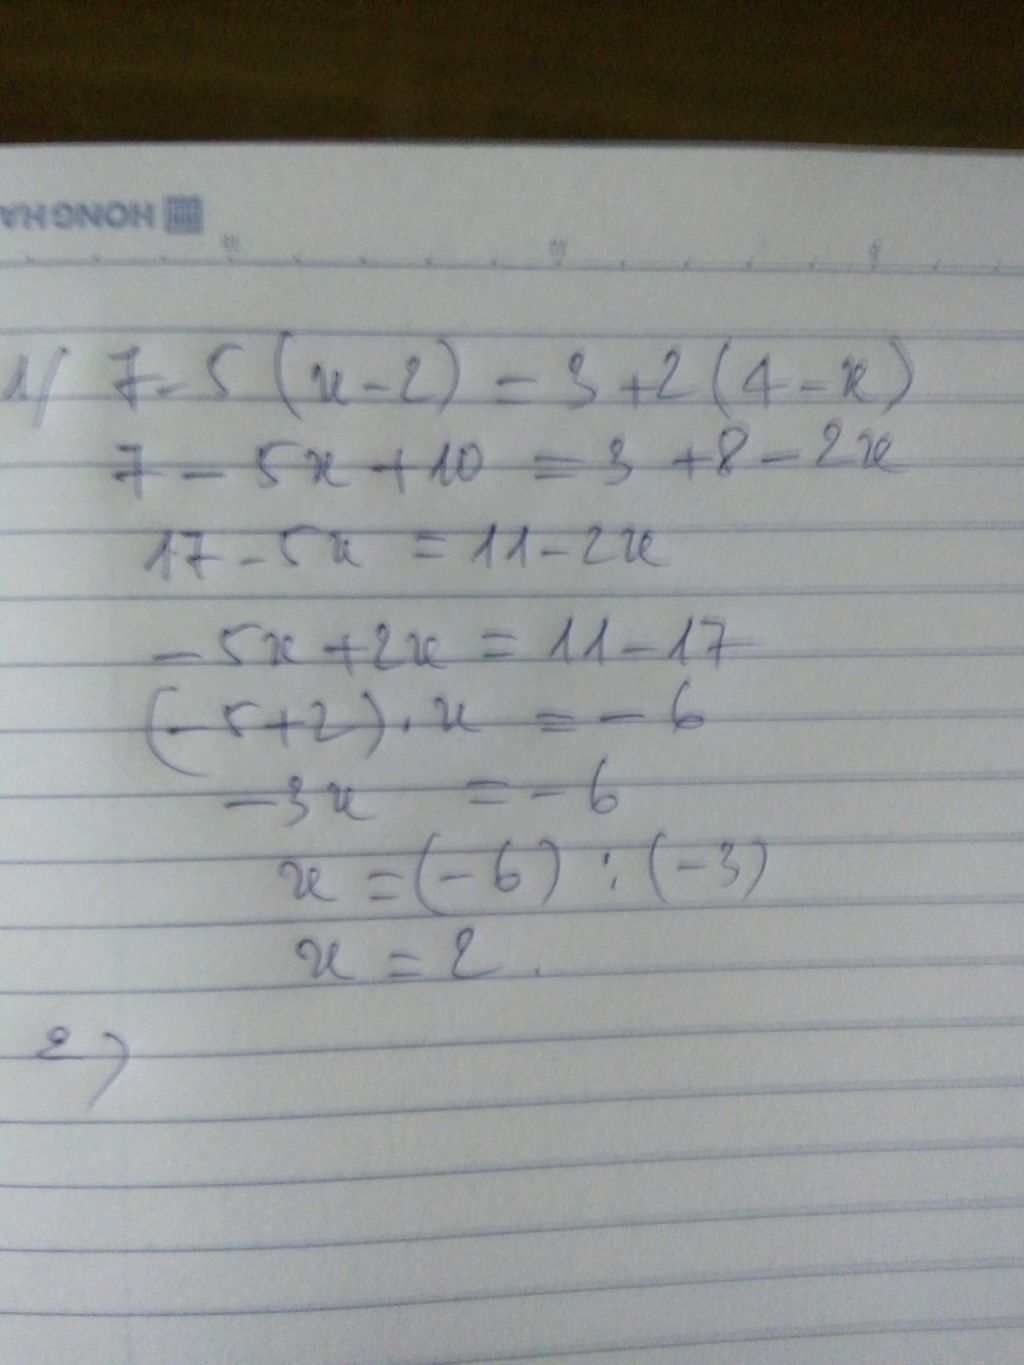 HONG HA
1/ 7 - 5 (x - 2) = 3 + 2 (4 - x)
7 - 5x + 10 = 3 + 8 - 2x
17 - 5x = 11 - 2x
- 5x + 2x = 11 - 17
(- 5 + 2) . x = - 6
- 3x = - 6
x = (- 6) : (- 3)
x = 2 .
2)